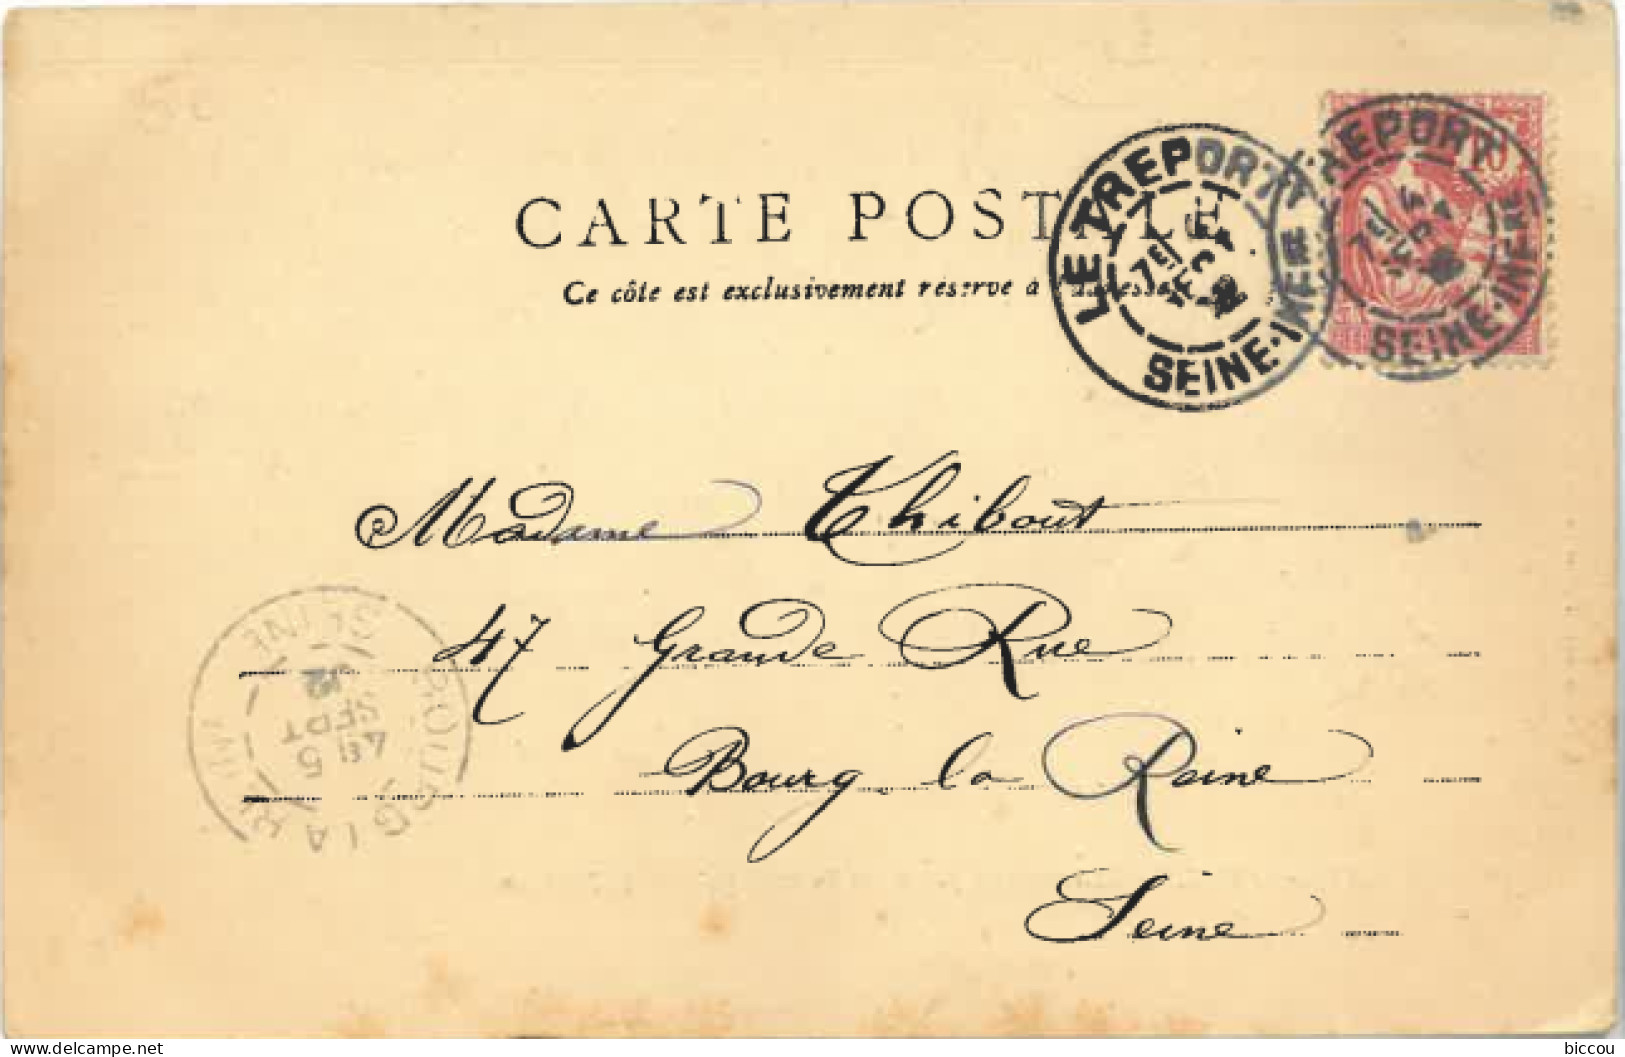 CARTE POSTALE
Ce côté est exclusivement réservé à l'adresse
LE TREPORT
SEINE-INFRE
LE TREPORT
SEINE-INFRE
Madame Thibout
47 Grande Rue
Bourg la Reine
Seine
BOURG LA REINE
SEINE
4E
5
SEPT
02
biccou